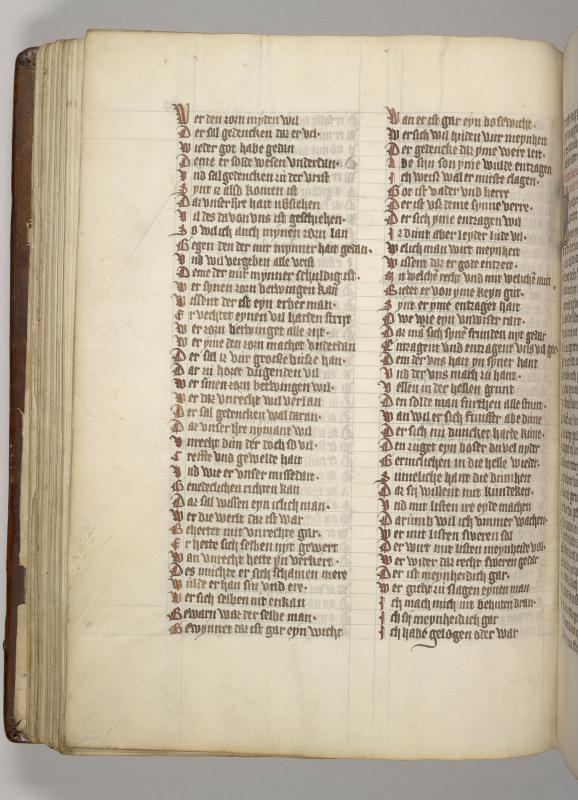 Wer den zorn myden wil
Der sal gedencken daz er vil
Wieder got habe gedan
Deme er solde wesen vnderdan
Vnd sal gedencken zu der vrist
Zynt iz also komen ist
Daz vnser hre hait
Vil des da von vns ist geschiehen
So wil ich auch mynen zorn lan
Gegen den der mir mynner hait gedan
Vnd wil vergeben alle vrist
Deme der mir mynner schuldig ist
Wer synen zorn betwingen kan
Wissent der ist eyn erber man
Er vechtet eynen vil harden strijt
Wer zorn betwinget alle zijt
Wer yme den zorn machet vnderdan
Der sal iz vur groisse buisse han
Daz zu horet dugenden vil
Wer sinen zorn betwingen wil
Wer daz vnrecht wil verlan
Der sal gedencken wal daran
Daz vnser hre nymant wil
Vnrecht dun der doch so vil
Creffte vnd gewelde hait
Vnd wie er vnser missedait
Genedeclichen richten kan
Daz sal wissen eyn iclich man
Wer die werlt daz ist war
Behertet mit vnrechte gar
Er hette sich selben nyt gewert
Wan vnrecht hette yn verkert
Des muchte er sich schamen mere
Wulde er han sin vnd ere
Wer sich selben nit enkan
Bewarn waz der selbe man
Gewynnet daz ist gar eyn wicht
Wan er ist gar eyn bosewicht
Wer sich wil huden vur meyneit
Der gedencke daz yme were leit
Obe syn son yme wulde entzagen
Ich weis wal er muste clagen
Got ist vader vnd herre
Der ist vns deme synne verre
Der sich yme entzagen wil
Iz dunt aber leyder lude vil
Welich man wirt meyneit
Wissent daz er gode entzeit
An welche recht vnd mit welichem mut
Bietet er von yme keyn gut
Zynt er yme entzaget hait
Owe wie eyn vnwiser rait
Daz man sich syne frunden nyt gedar
Entzagent vnd entzagent vns vil gar
Dem der vns hait yn syner hant
Vnd der vns mach zu hant
Vellen in der hellen grunt
Den solde man furchten alle stunt
Wan wil er sich funster abe dune
Der sich nu duncket harte kune
Den zuget eyn boser duvel nyder
Gemelichen in die helle wieder
Sunneliche hant die dumheit
Daz sij willent mit kundekeit
Vnd mit listen ire eyde machen
Darumb wil ich vmmer wachen
Wer mit listen sweren sol
Der wirt mit listen meyneide vol
Wer wider daz recht sweren gedar
Der ist meyneidich gar
Wer giehet zu slagen eynen man
Ich mach mich nit behuden dran
Ich sij meyneidich gar
Ich habe gelogen oder war